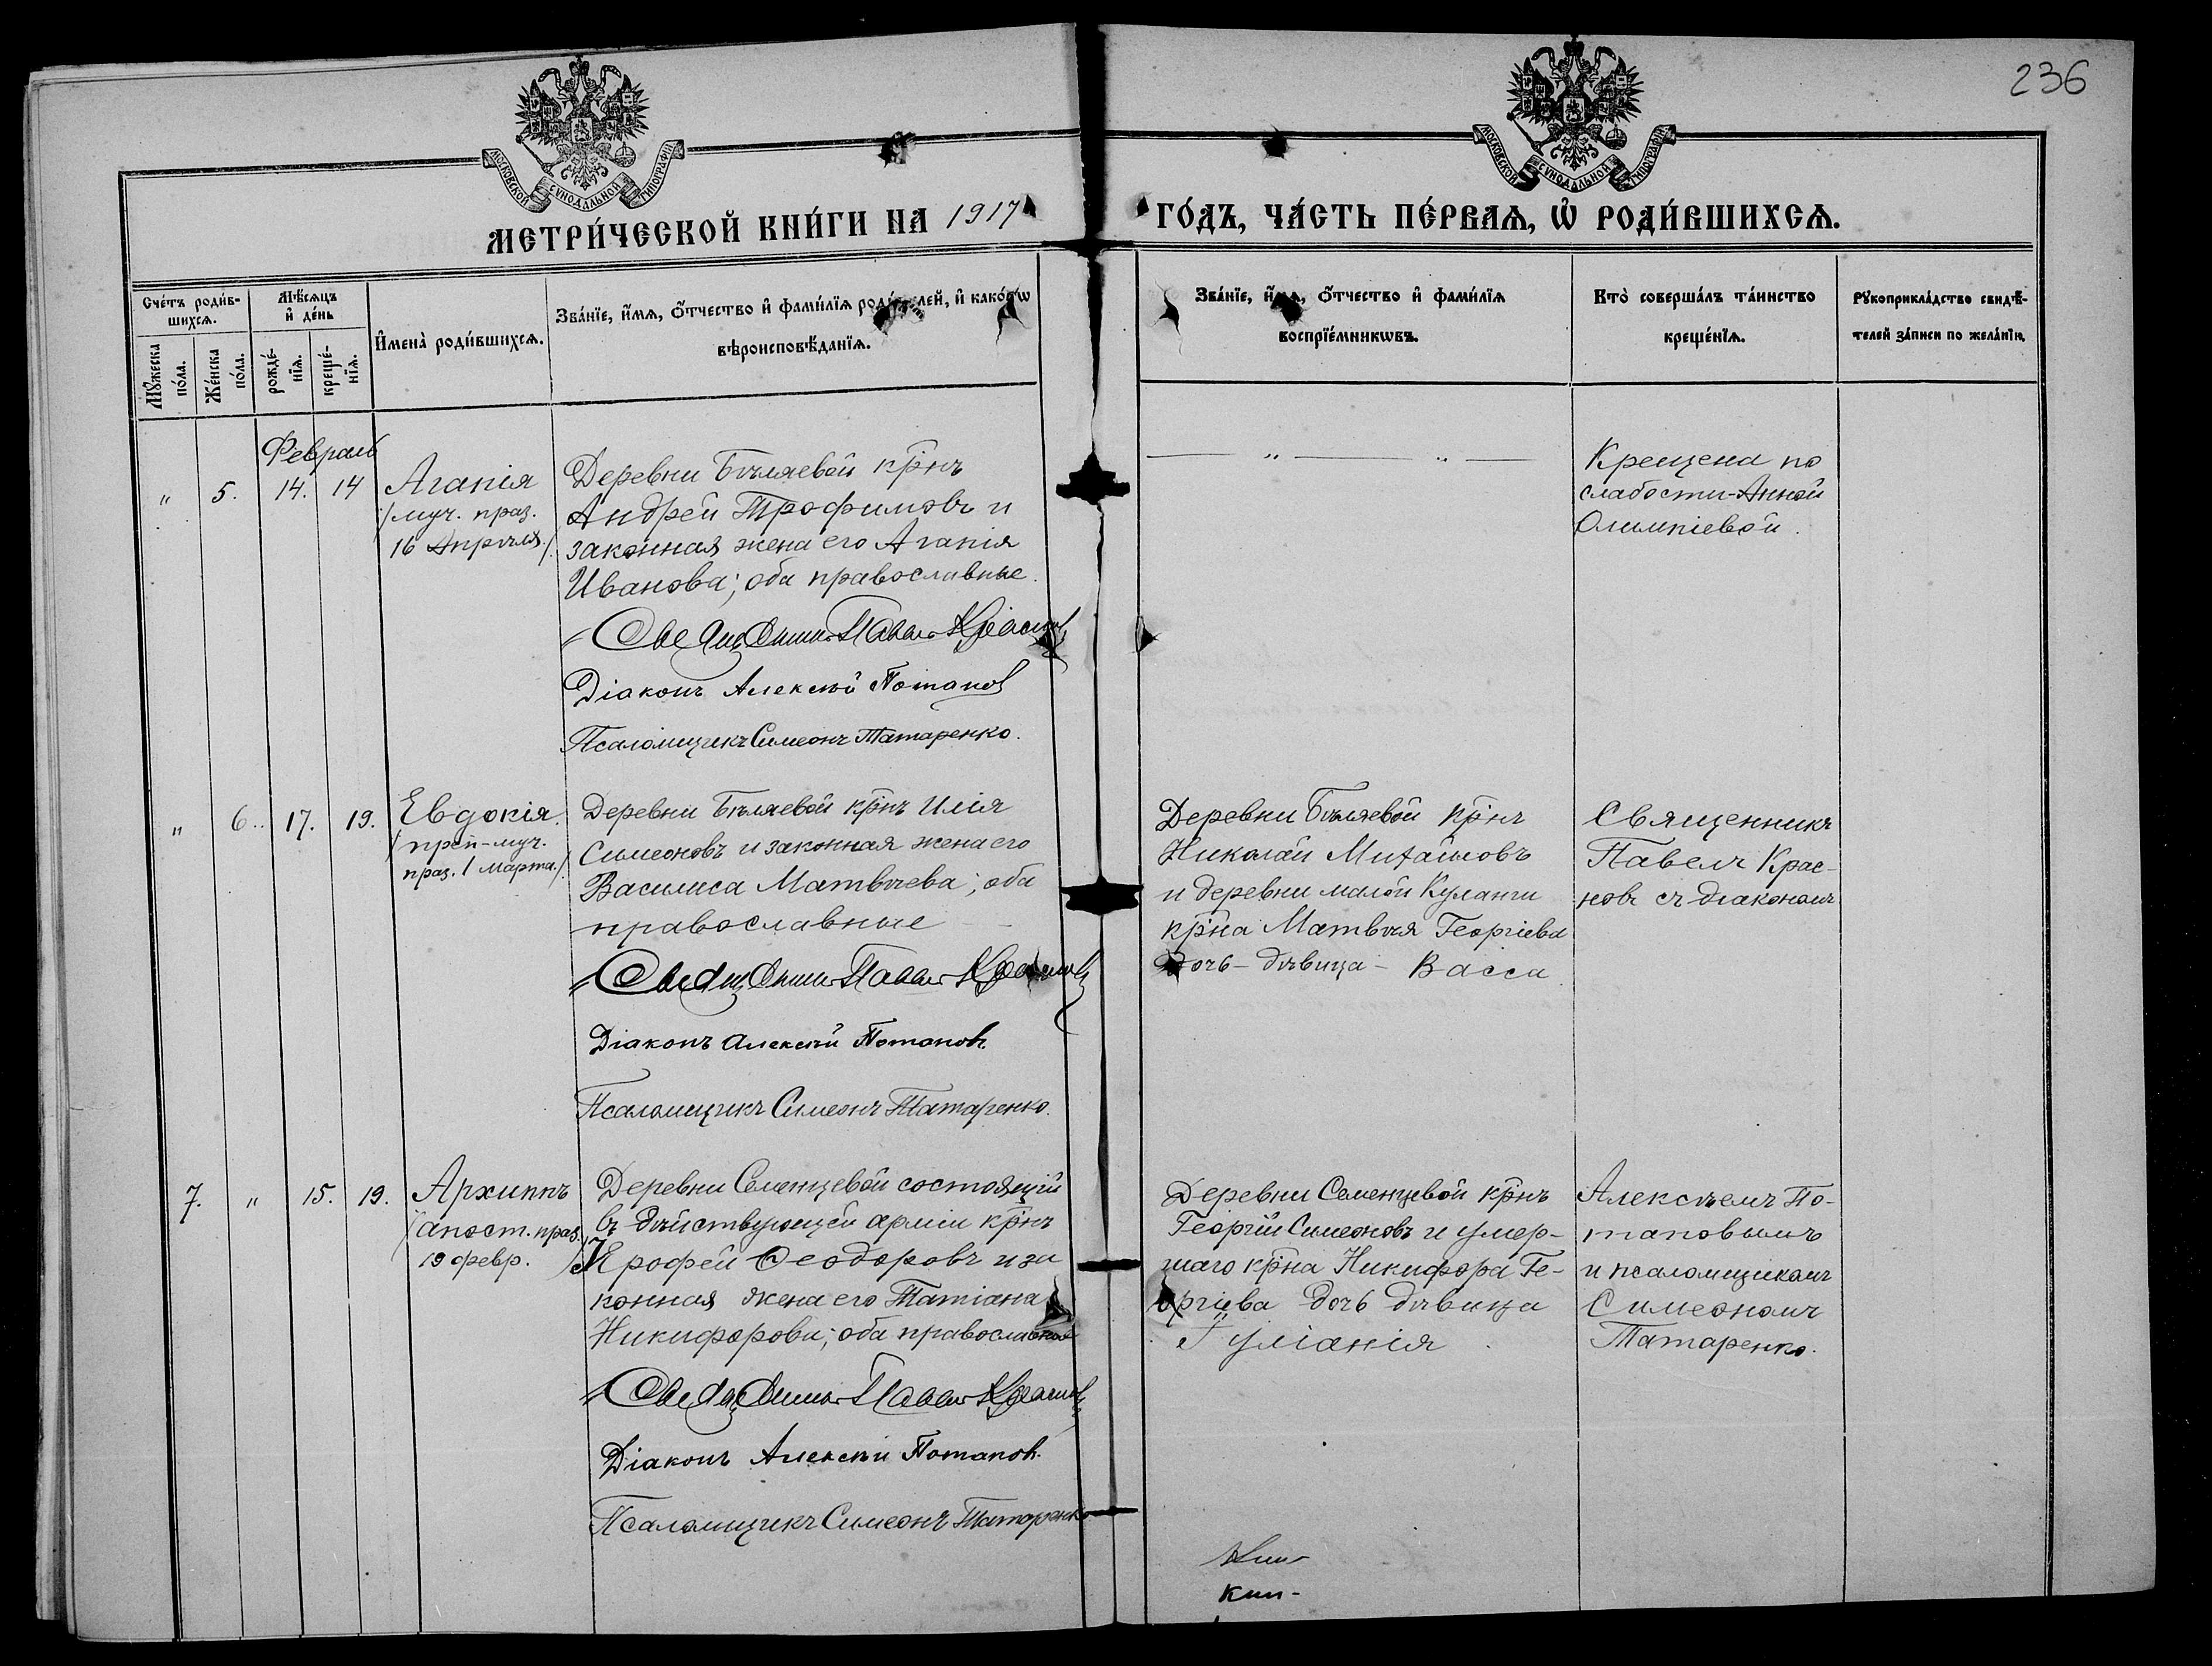 236
МОСКОВСКОЙ СУНОДАЛЬНОЙ ТИПОГРАФІИ
МОСКОВСКОЙ СУНОДАЛЬНОЙ ТИПОГРАФІИ
МЕТРИ́ЧЕСКОЙ КНИ́ГИ НА 1917 ГО́ДЪ, ЧА́СТЬ ПЕ́РВАѦ, Ѡ҆ РОДИ́ВШИХСѦ.
Сче́тъ роди́в-
шихсѧ.
Мꙋ́жеска
по́ла.
Же́нска
по́ла.
Мѣ́сѧцъ
и҆ де́нь
рожде́-
нїѧ.
креще́-
нїѧ.
И҆мена̀ роди́вшихсѧ.
Зва́нїе, и҆́мѧ, ѻ҆́тчество и҆ фами́лїѧ роди́телей, и҆ како́гѡ
вѣроисповѣ́данїѧ.
Зва́нїе, и҆́мѧ, ѻ҆́тчество и҆ фами́лїѧ
воспрїе́мникѡвъ.
Кто̀ соверша́лъ та́инство
креще́нїѧ.
Рꙋкоприкла́дство свидѣ́-
телей за́писи по жела́нїю.
Февраль
" 5. 14. 14
Агапія
/муч. праз.
16 Апрѣля./
Деревни Бѣляевой кр̄нъ
Андрей Трофимовъ и
законная жена его Агапія
Иванова; оба православные.
Священникъ Павелъ Красновъ
Діаконъ Алексѣй Потаповъ
Псаломщикъ Симеонъ Татаренко.
— " — " —
Крещена по
слабости-Анной
Олимпіевой.
" 6. 17. 19.
Евдокія.
/преп-муч.
праз. 1 марта./
Деревни Бѣляевой кр̄нъ Илія
Симеоновъ и законная жена его
Василиса Матвѣева; оба
православные
Священникъ Павелъ Красновъ
Діаконъ Алексѣй Потаповъ.
Псаломщикъ Симеонъ Татаренко.
Деревни Бѣляевой кр̄нъ
Николай Михайловъ
и деревни малой Куланги
кр̄на Матвѣя Георгіева
дочь - дѣвица - Васса
Священникъ
Павелъ Крас-
новъ съ діакономъ
7. " 15. 19.
Архиппъ
/апост. праз.
19 февр. /
Деревни Семенцевой состоящій
въ дѣйствующей арміи кр̄нъ
Ерофей Ѳеодоровъ и за
конная жена его Татіана
Никифорова; оба православные
Священникъ Павелъ Красновъ
Діаконъ Алексѣй Потаповъ.
Псаломщикъ Симеонъ Татаренко
Деревни Семенцевой кр̄нъ
Георгій Симеоновъ и умер-
шаго кр̄на Никифора Ге-
оргіева дочь дѣвица
Іуліанія.
Алексѣемъ По-
таповымъ
и псаломщикомъ
Симеономъ
Татаренко.
Кни-